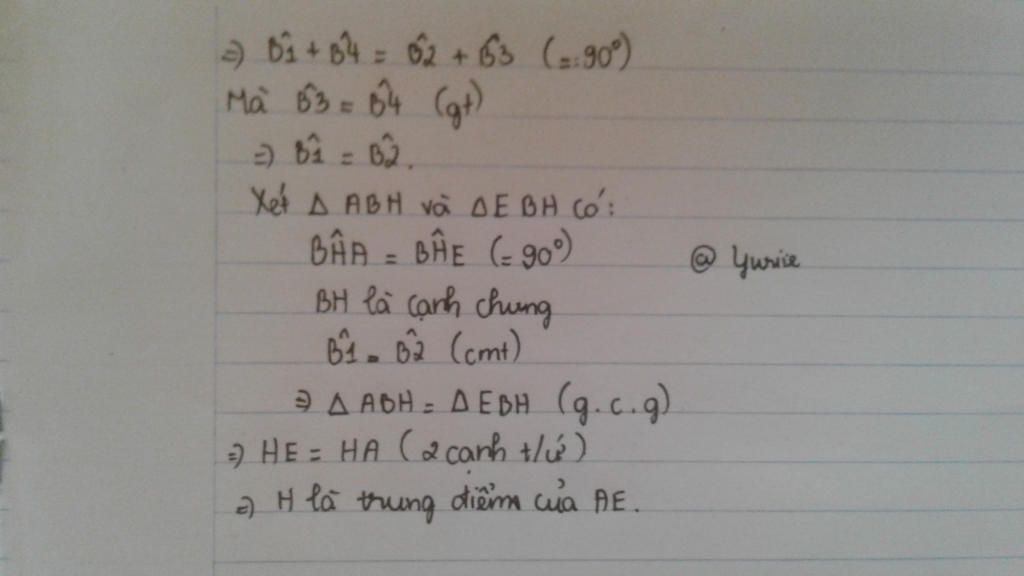 => B̂1 + B̂4 = B̂2 + B̂3 (=90°)
Mà B̂3 = B̂4 (gt)
=> B̂1 = B̂2.
Xét Δ ABH và Δ EBH có:
BĤA = BĤE (= 90°)
@ Yuriie
BH là cạnh chung
B̂1 = B̂2 (cmt)
=> Δ ABH = Δ EBH (g.c.g)
=> HE = HA (2 cạnh t/ứ)
=> H là trung điểm của AE.